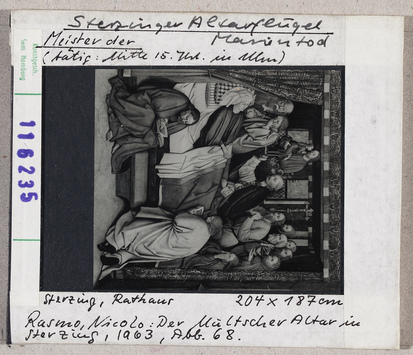 Sterzinger Altarflügel
Meister der Marientod
(tätig: Mitte 15. Jhd. in Ulm)
116235
Sterzing, Rathaus 204 x 187cm
Rasmo, Nicolo: Der Multscher Altar in
Sterzing, 1963, Abb. 68.